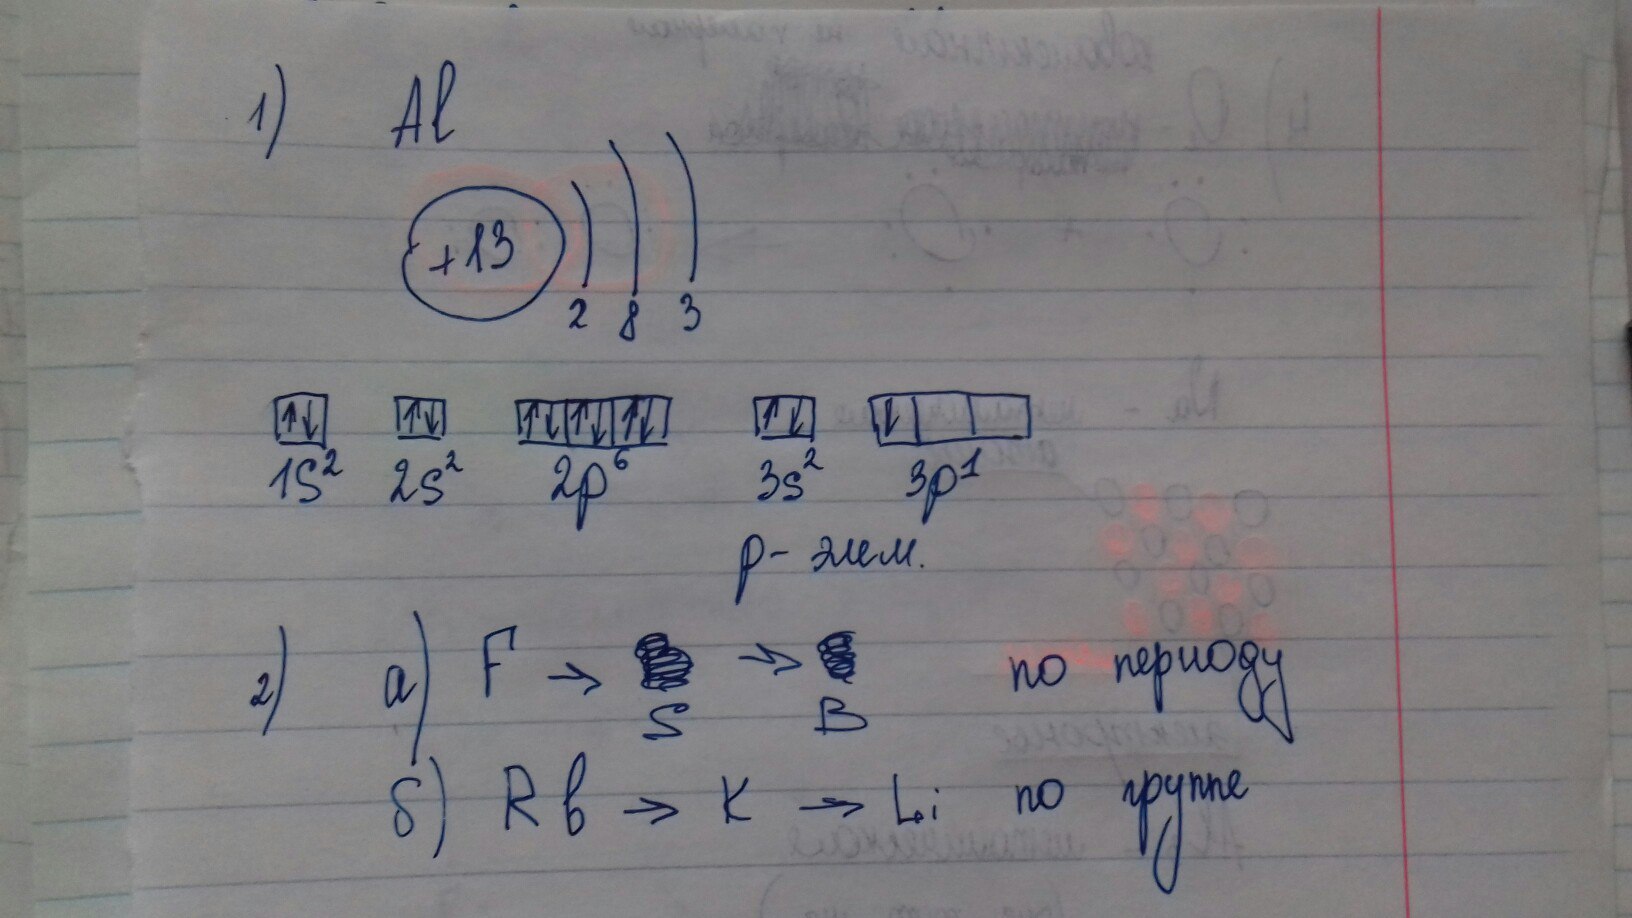 1) Al
+13
2 8 3
↑↓ ↑↓ ↑↓ ↑↓ ↑↓ ↑↓ ↓
1s² 2s² 2p⁶ 3s² 3p¹
p- элем.
2) а) F → S → B по периоду
б) Rb → K → Li по группе